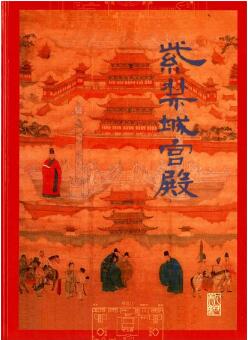 紫禁城宮殿